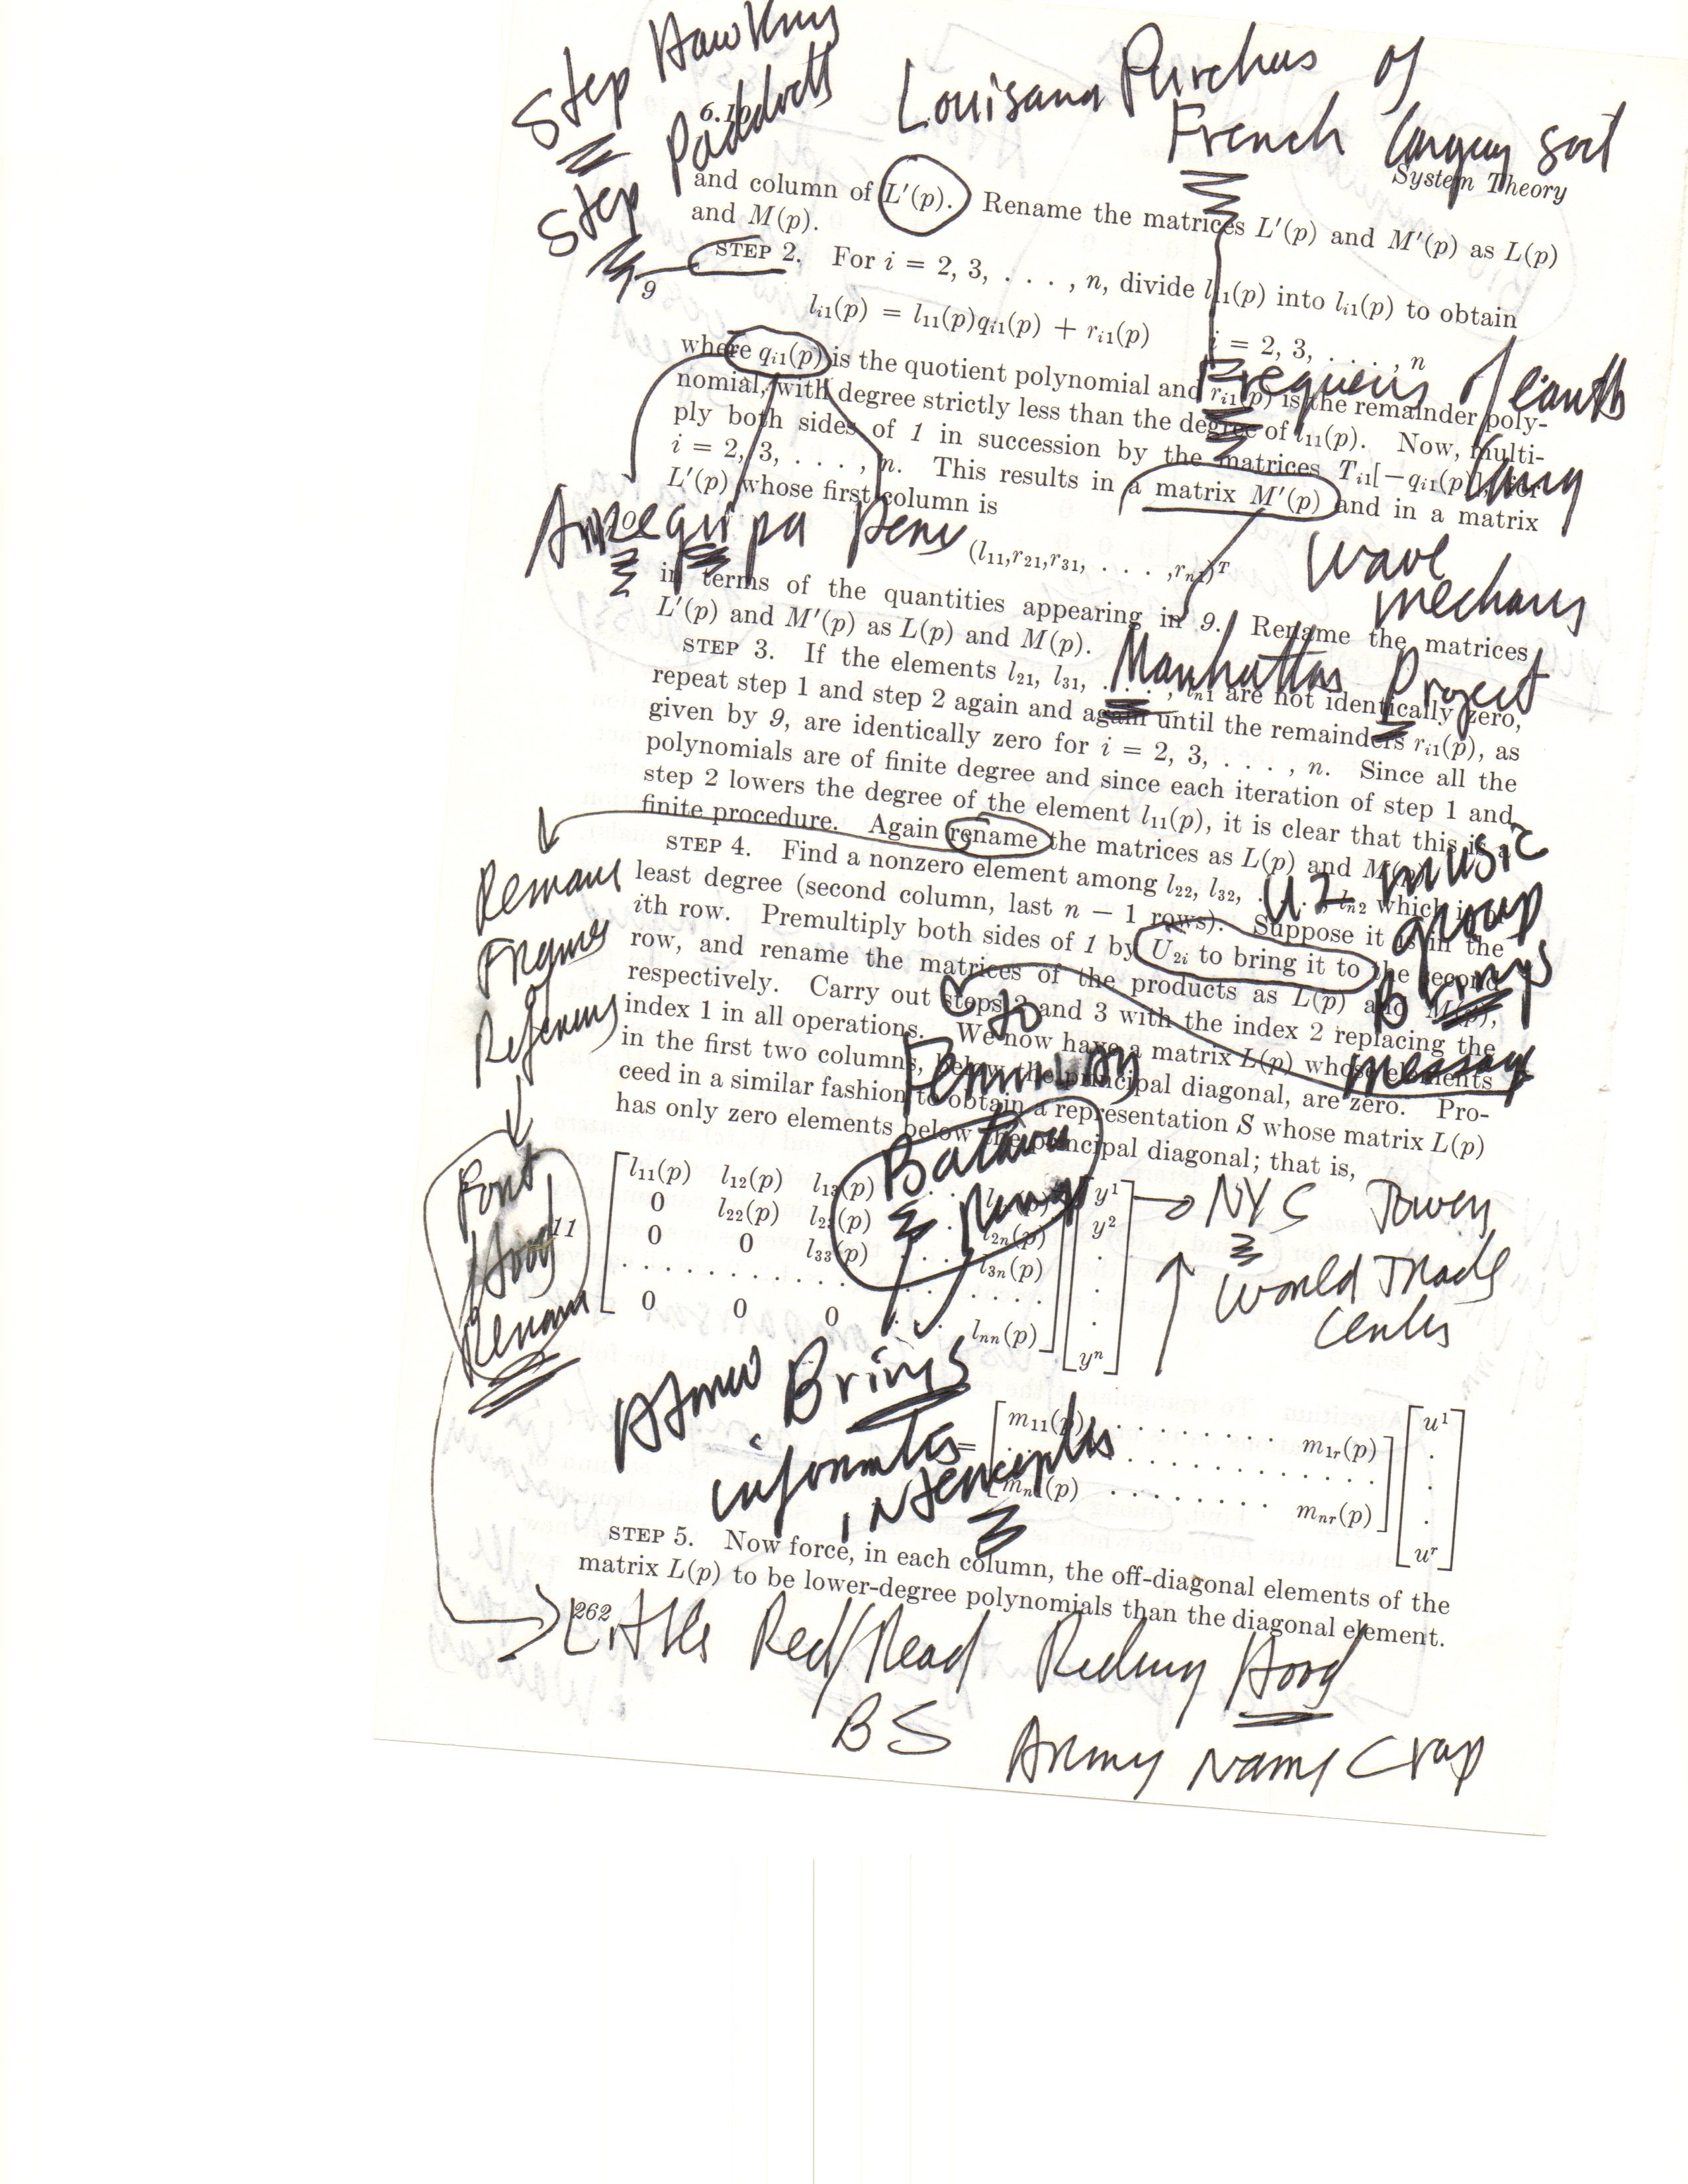 Step Hawking
Step
6.1
Louisana Purchas of
French
System Theory
and column of L′(p). Rename the matrices L′(p) and M′(p) as L(p)
and M(p).
STEP 2. For i = 2, 3, . . . , n, divide l11(p) into li1(p) to obtain
9
li1(p) = l11(p)qi1(p) + ri1(p) i = 2, 3, . . . , n
where qi1(p) is the quotient polynomial and ri1(p) is the remainder poly-
nomial, with degree strictly less than the degree of l11(p). Now, multi-
ply both sides of 1 in succession by the matrices Ti1[−qi1(p)], for
i = 2, 3, . . . , n. This results in a matrix M′(p) and in a matrix
L′(p) whose first column is
10
(l11,r21,r31, . . . ,rn1)T
wave
in terms of the quantities appearing in 9. Rename the matrices
L′(p) and M′(p) as L(p) and M(p).
Manhattan Project
STEP 3. If the elements l21, l31, . . . , ln1 are not identically zero,
repeat step 1 and step 2 again and again until the remainders ri1(p), as
given by 9, are identically zero for i = 2, 3, . . . , n. Since all the
polynomials are of finite degree and since each iteration of step 1 and
step 2 lowers the degree of the element l11(p), it is clear that this is a
finite procedure. Again rename the matrices as L(p) and M(p).
U2 music
group
Brings
message
to
STEP 4. Find a nonzero element among l22, l32, . . . , ln2 which is of
least degree (second column, last n − 1 rows). Suppose it is in the
ith row. Premultiply both sides of 1 by U2i to bring it to the second
row, and rename the matrices of the products as L(p) and M(p),
respectively. Carry out steps 2 and 3 with the index 2 replacing the
index 1 in all operations. We now have a matrix L(p) whose elements
in the first two columns, below the principal diagonal, are zero. Pro-
ceed in a similar fashion to obtain a representation S whose matrix L(p)
has only zero elements below the principal diagonal; that is,
Hood
11
l11(p) l12(p) l13(p) . . . l1n(p) y1
0 l22(p) l23(p) . . . l2n(p) y2
0 0 l33(p) . . . l3n(p) .
. . . . . . . . . . . . .
0 0 0 . . . lnn(p) yn
NYC Towers
World Trade
Center
Brings
= m11(p) . . . . . . . . m1r(p) u1
. . . . . . . . . . . . .
mn1(p) . . . . . . . . mnr(p) ur
STEP 5. Now force, in each column, the off-diagonal elements of the
matrix L(p) to be lower-degree polynomials than the diagonal element.
262
Little Red/Read Riding Hood
BS
Army Name Crap